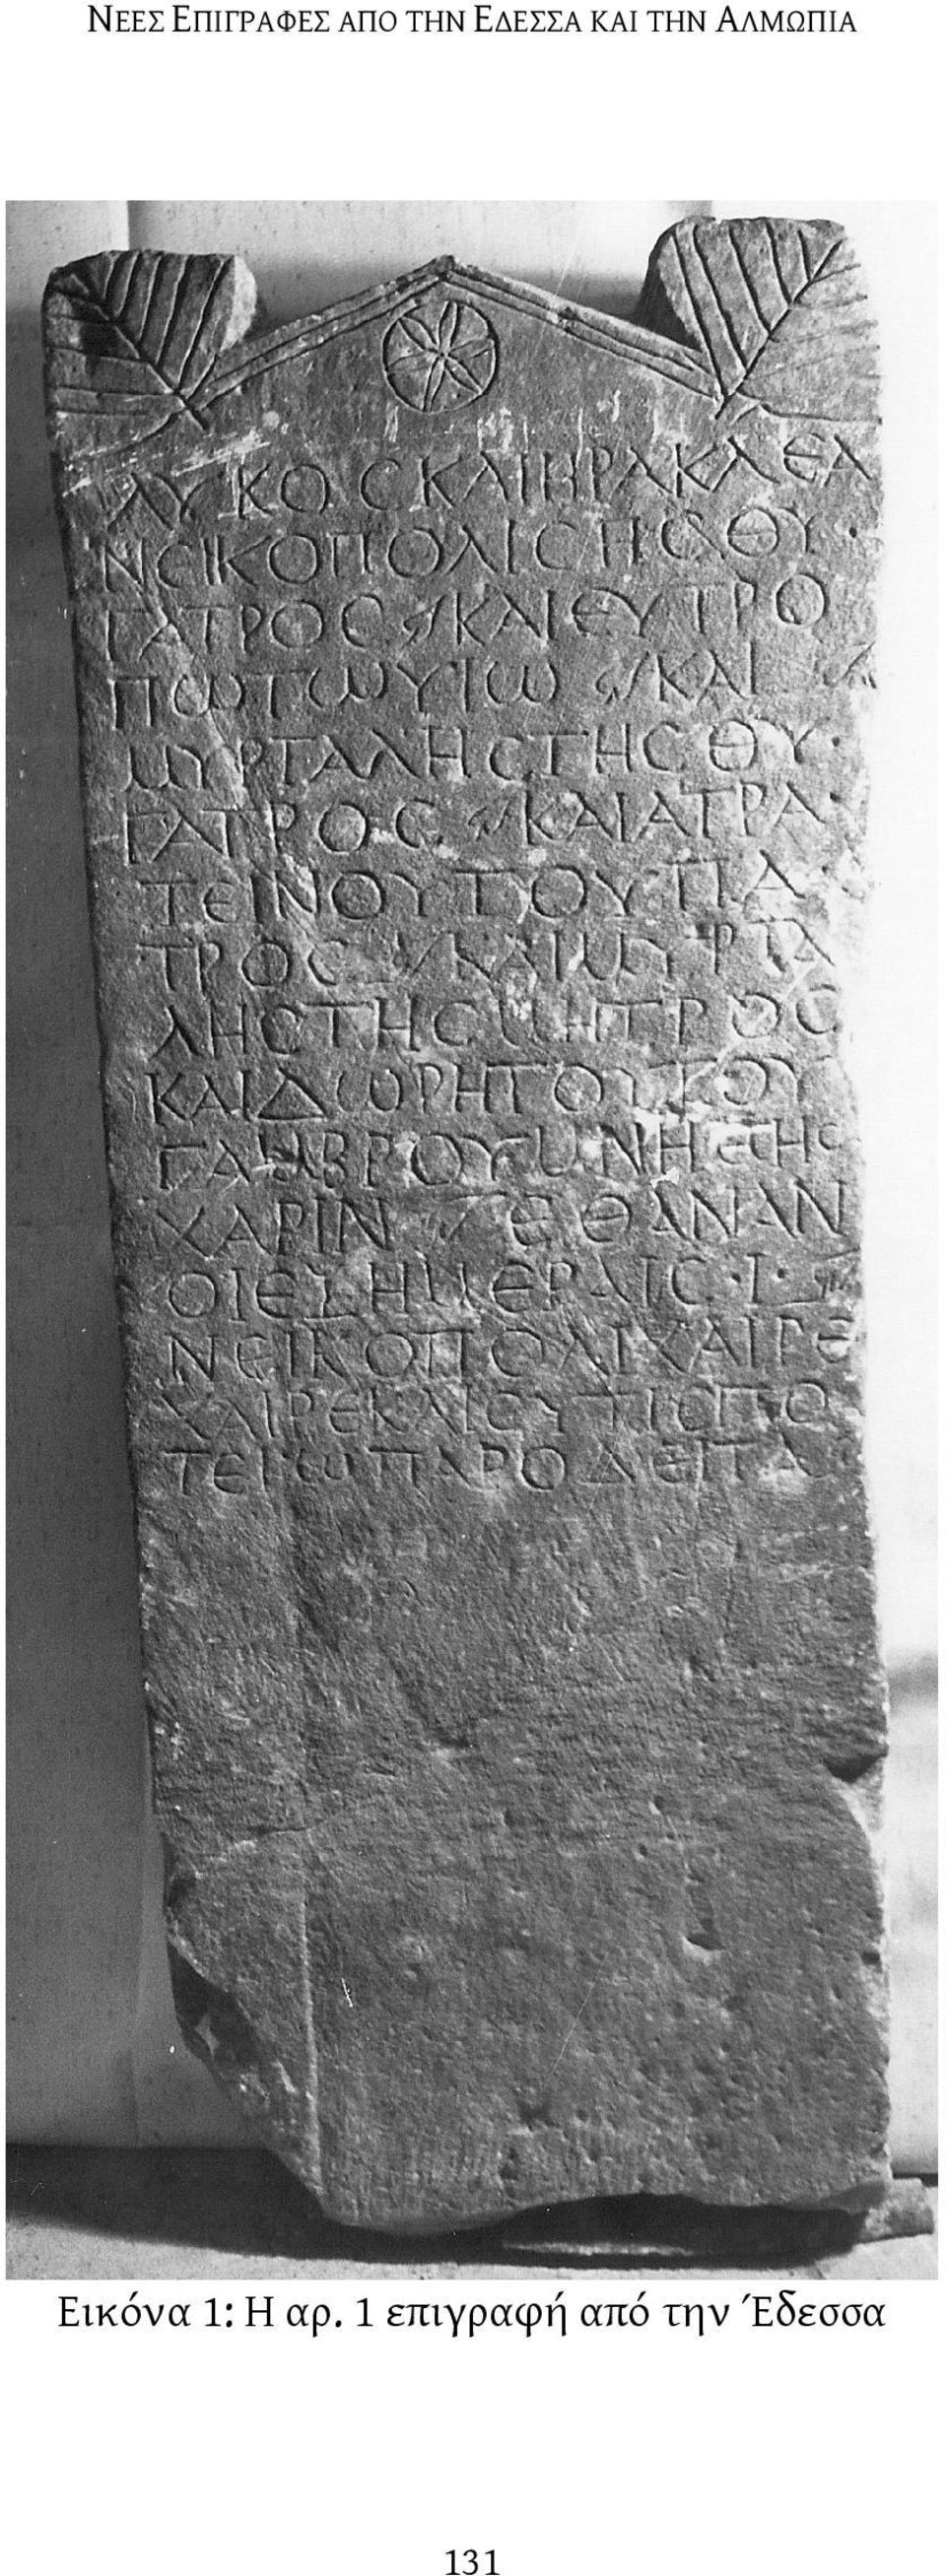 ΝΕΕΣ ΕΠΙΓΡΑΦΕΣ ΑΠΟ ΤΗΝ ΕΔΕΣΣΑ ΚΑΙ ΤΗΝ ΑΛΜΩΠΙΑ
ΛΥΚΟϹΚΑΙΗΡΑΚΛΕΑ
ΝΕΙΚΟΠΟΛΙϹΗϹΘΥ
ΓΑΤΡΟϹ ΚΑΙΕΥΤΡΟ
ΠΩΤΩΥΙΩ ΚΑΙ
ΜΥΡΤΑΛΗϹΤΗϹΘΥ
ΓΑΤΡΟϹ ΚΑΙΑΤΡΑ
ΤΕΙΝΟΥΤΟΥΠΑ
ΤΡΟϹ ΚΑΙΜΥΡΤΑ
ΛΗϹΤΗϹΜΗΤΡΟϹ
ΚΑΙΔΩΡΗΤΟΥΤΟΥ
ΓΑΜΒΡΟΥΜΝΗΗϹ
ΧΑΡΙΝ ΕΘΑΝΑΝ
ΟΙΕΞΗΜΕΡΑΙϹ·Ι·
ΝΕΙΚΟΠΟΛΙΧΑΙΡΕ
ΧΑΙΡΕΚΑΙϹΥΤΙϹΠΟ
ΤΕΙΩΠΑΡΟΔΕΙΤΑ
Εικόνα 1: Η αρ. 1 επιγραφή από την Έδεσσα
131